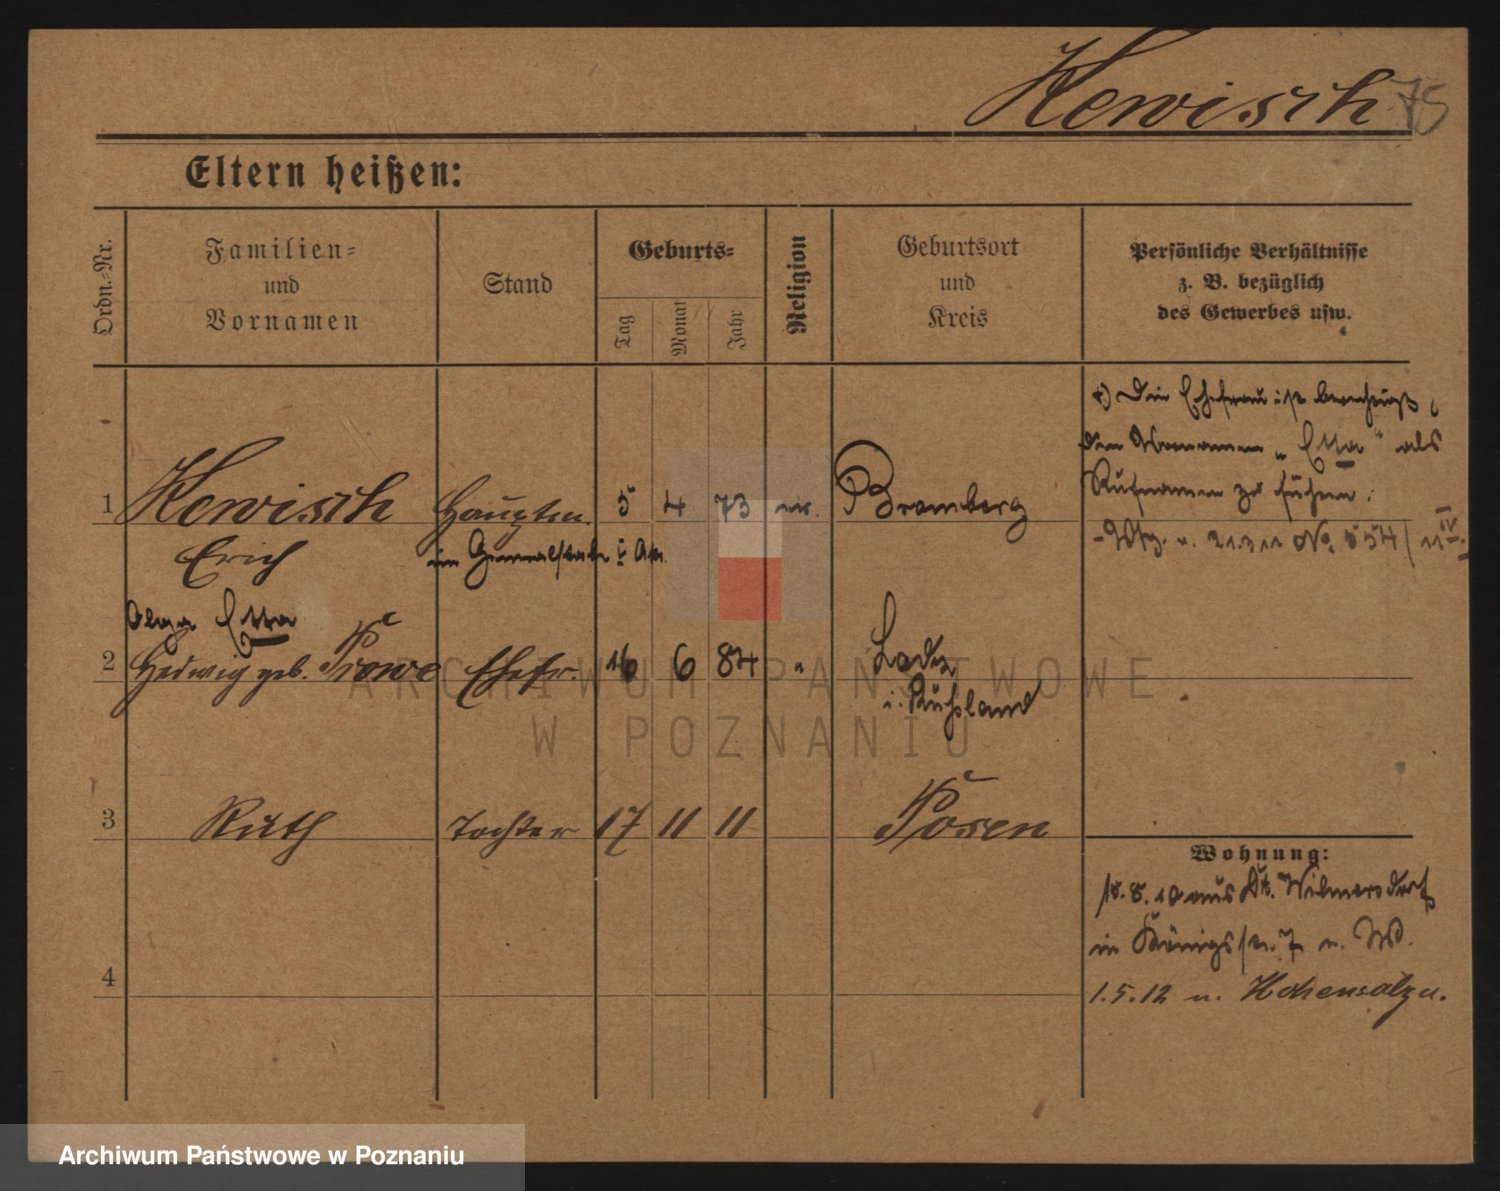 Hewisch 75
Eltern heißen:
Ordn.-Nr.
Familien-
und
Vornamen
Stand
Geburts-
Tag
Monat
Jahr
Religion
Geburtsort
und
Kreis
Persönliche Verhältnisse
z. B. bezüglich
des Gewerbes usw.
1 Hewisch Hauptm. 5 4 73 ev. Bromberg
Erich im Generalstabe
Olga Etta
2 Hedwig geb. Prowe Ehefr. 16 6 84 " Lodz
i. Rußland
3 Ruth Tochter 17 11 11 Posen
4
Die Ehefrau ist berechtigt,
den Vornamen „Etta" als
Rufnamen zu führen.
21.3.11 No. 554/11 IV
Wohnung:
15.8.10 aus Dt. Wilmersdorf
in Königstr. 7 n. W.
1.5.12 n. Hohensalza.
ARCHIWUM PAŃSTWOWE
W POZNANIU
Archiwum Państwowe w Poznaniu